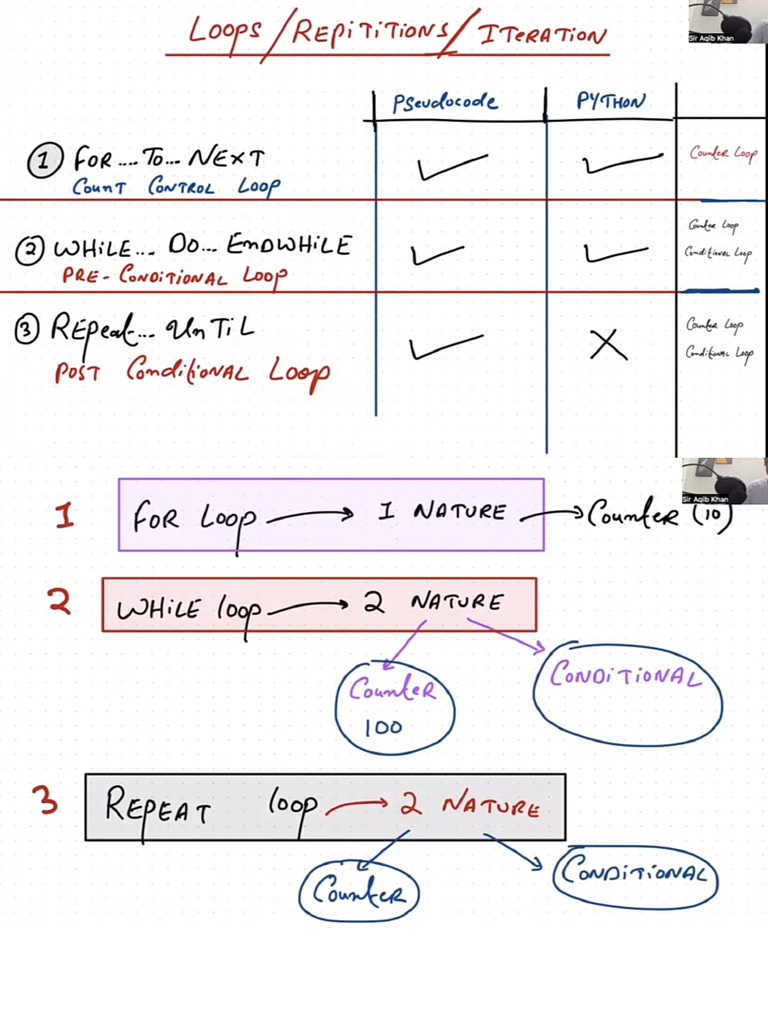 LOOPS/REPITITIONS/ITERATION
Sir Aqib Khan
PSeudocode PYTHON
1 FOR.... To... NEXT
Counter Loop
COUNT CONTROL LOOP
2 WHILE... Do... ENDWHILE
Counter Loop
PRE-CONDITIONAL LOOP
Conditional Loop
3 REPeat... UnTiL
Counter Loop
POST ConditioNAL LOOP
Conditional Loop
Sir Aqib Khan
1 FOR LOOP 1 NATURE Counter (10)
2 WHILE loop 2 NATURE
Counter
100
CONDITIONAL
3 REPEAT loop 2 NATURE
Counter
CONDITIONAL